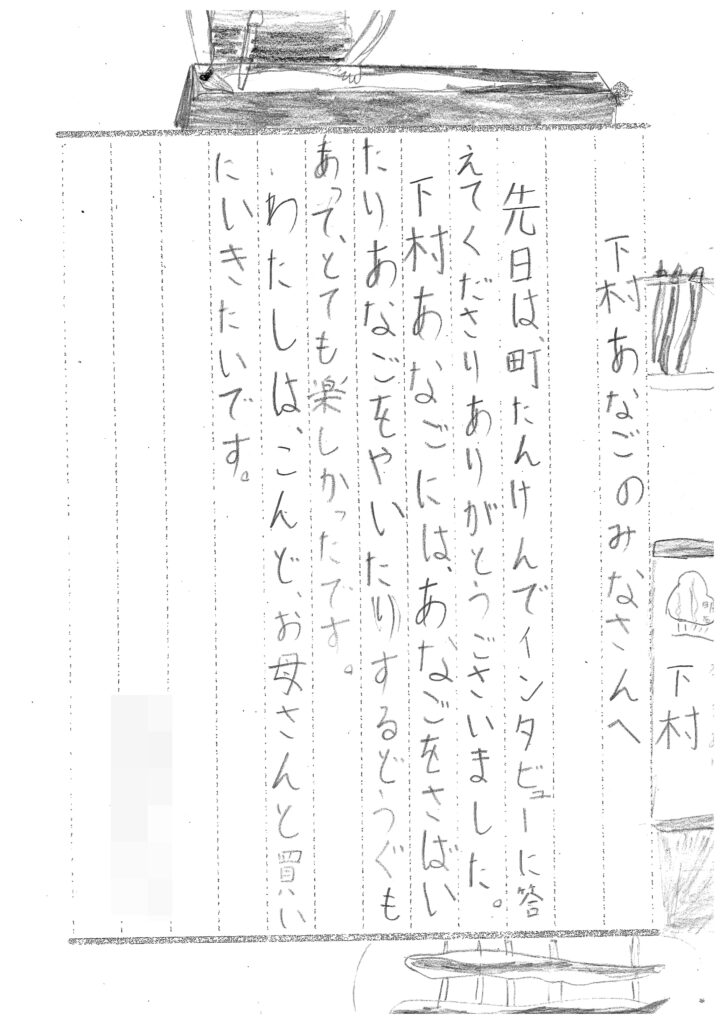 下村
下村あなごのみなさんへ
先日は、町たんけんでインタビューに答
えてくださりありがとうございました。
下村あなごには、あなごをさばい
たりあなごをやいたりするどうぐも
あって、とても楽しかったです。
わたしは、こんど、お母さんと買い
にいきたいです。